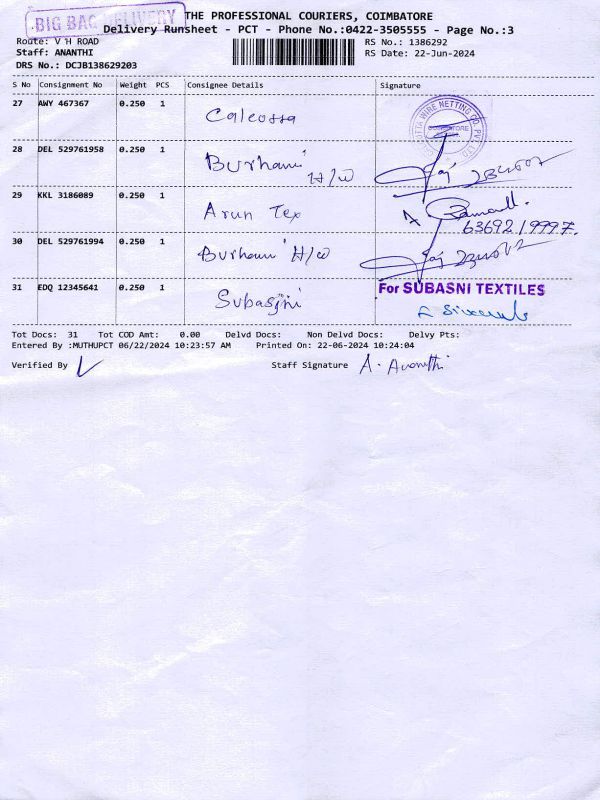 BIG BAG DELIVERY
THE PROFESSIONAL COURIERS, COIMBATORE
Delivery Runsheet - PCT - Phone No.:0422-3505555 - Page No.:3
Route: V H ROAD RS No.: 1386292
Staff: ANANTHI RS Date: 22-Jun-2024
DRS No.: DCJB138629203
S No Consignment No Weight PCS Consignee Details Signature
27 AWY 467367 0.250 1 Calcossa
COIMBATORE
28 DEL 529761958 0.250 1 Burhani H/W
29 KKL 3186089 0.250 1 Arun Tex
63692 19997.
30 DEL 529761994 0.250 1 Burhani H/W
31 EDQ 12345641 0.250 1 Subasjni For SUBASNI TEXTILES
Tot Docs: 31 Tot COD Amt: 0.00 Delvd Docs: Non Delvd Docs: Delvy Pts:
Entered By :MUTHUPCT 06/22/2024 10:23:57 AM Printed On: 22-06-2024 10:24:04
Verified By Staff Signature A. Ananthi